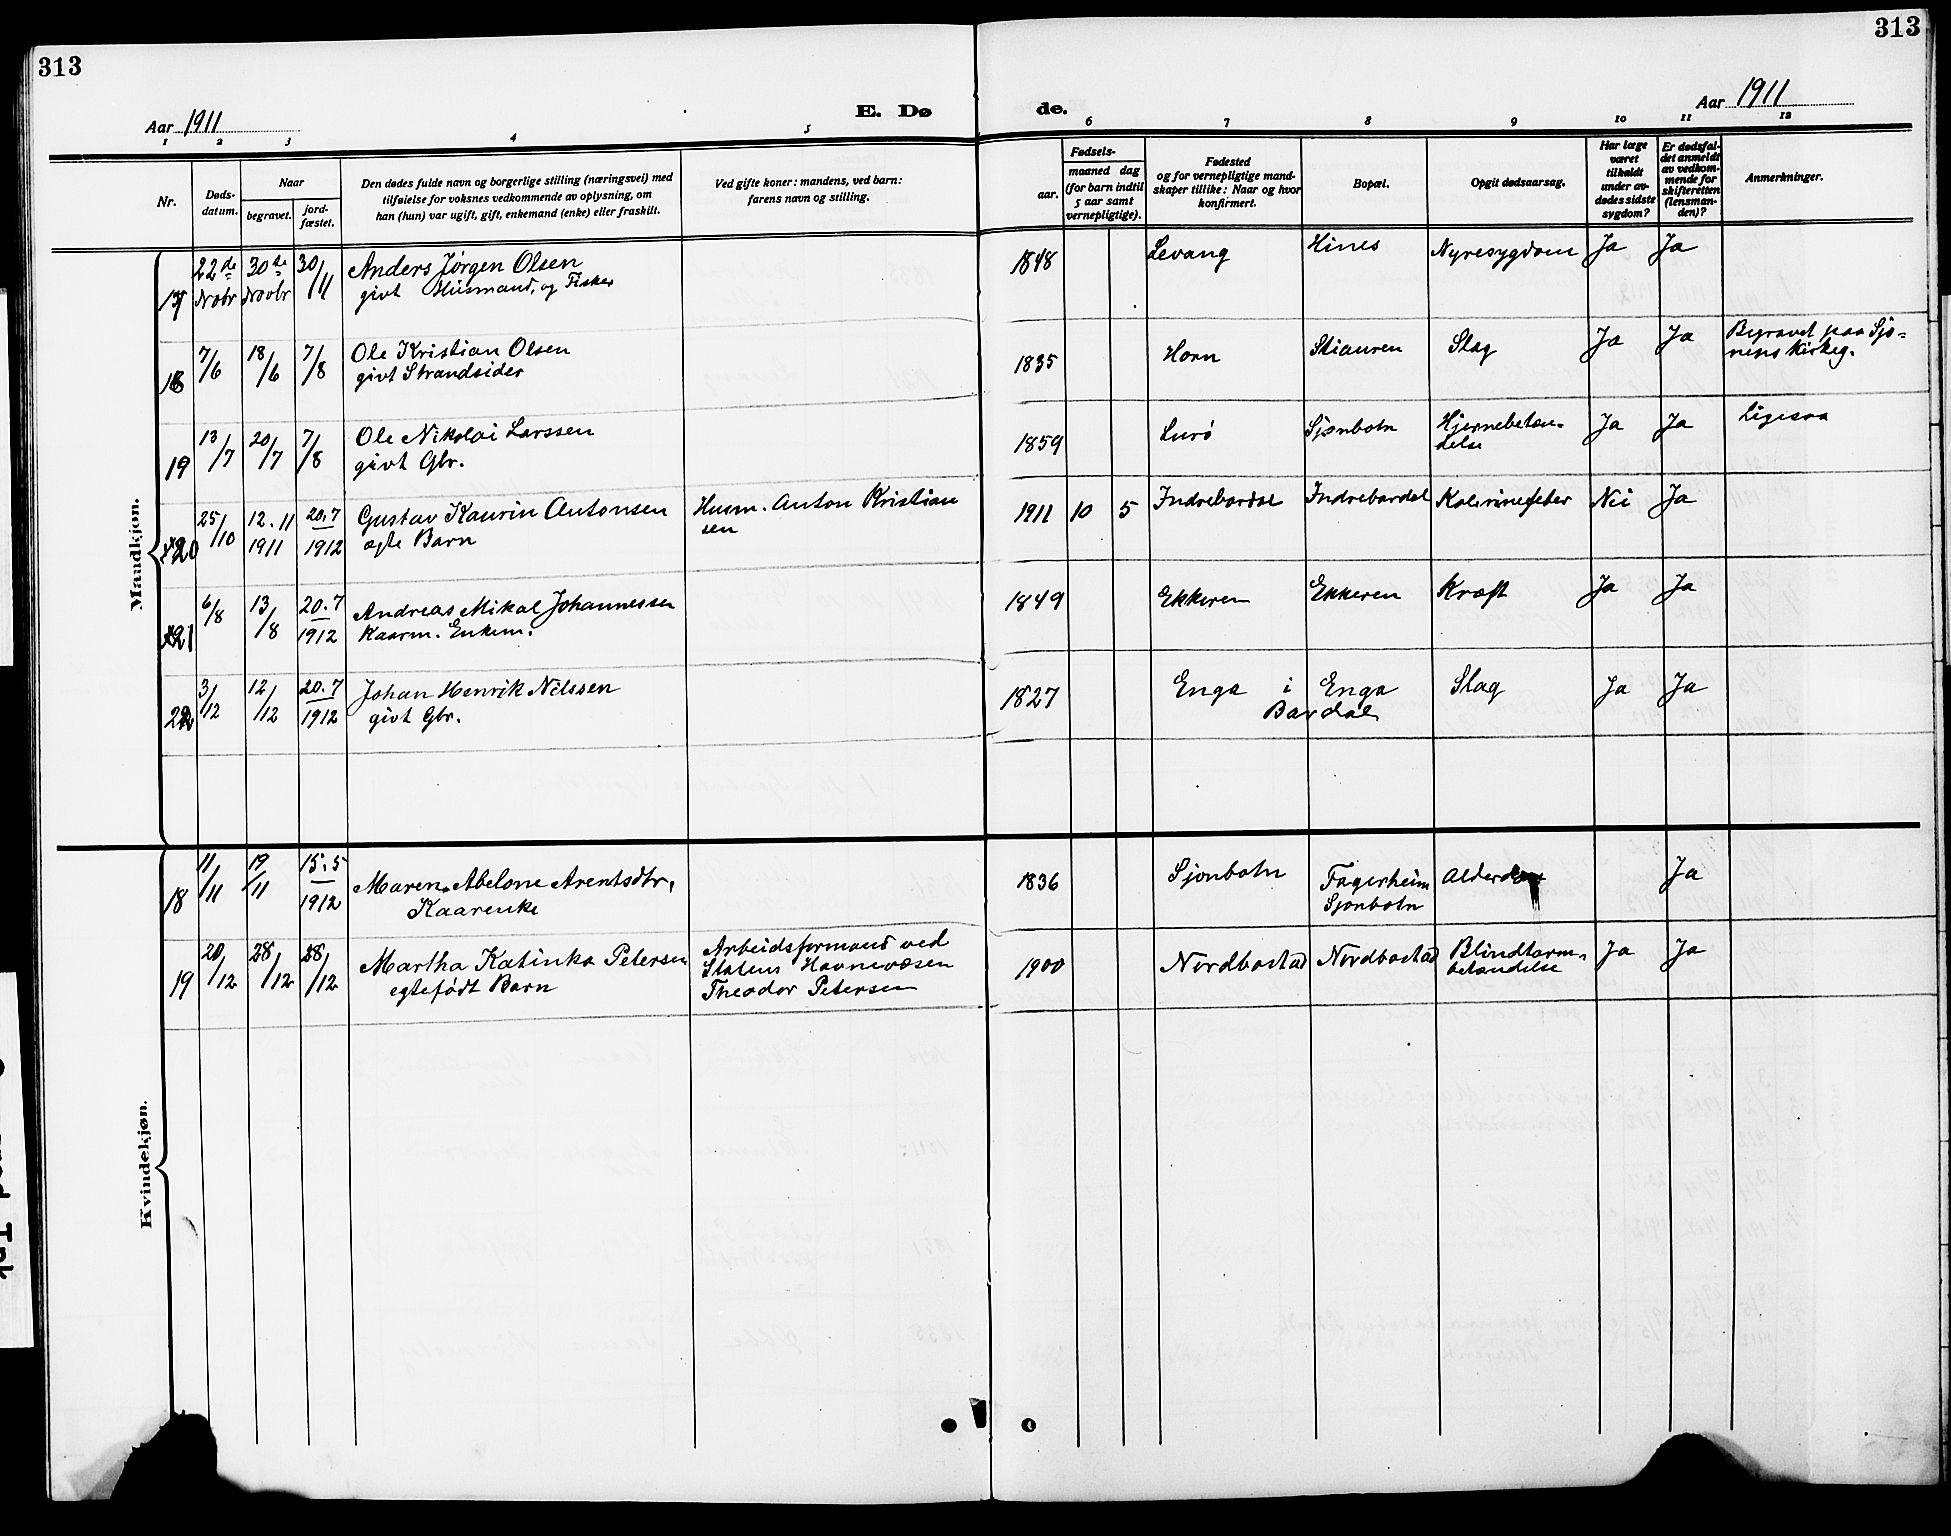 313
313
Aar 1911
E. Dø
de.
Aar 1911
1 2 3 4 5 6 7 8 9 10 11 12
Nr.
Døds-
datum.
Naar
begravet.
jord-
fæstet.
Den dødes fulde navn og borgerlige stilling (næringsvei) med
tilføielse for voksnes vedkommende av oplysning, om
han (hun) var ugift, gift, enkemand (enke) eller fraskilt.
Ved gifte koner: mandens, ved barn:
farens navn og stilling.
Fødsels-
aar.
maaned dag
(for barn indtil
5 aar samt
vernepligtige).
Fødested
og for vernepligtige mand-
skaper tillike: Naar og hvor
konfirmert.
Bopæl.
Opgit dødsaarsag.
Har læge
været
tilkaldt
under av-
dødes sidste
sygdom?
Er dødsfal-
det anmeldt
av vedkom-
mende for
skifteretten
(lensman-
den)?
Anmerkninger.
Mandkjøn.
17 22de Nobr 30te Novbr 30/11 Anders Jørgen Olsen 1848 Levang Hines Nyresygdom Ja Ja
givt Husmand, og Fisker
18 7/6 18/6 7/8 Ole Kristian Olsen 1835 Horn Stiauren Slag Ja Ja Begravet paa Sjo-
givt Strandsider nens Kirkeg.
19 13/7 20/7 7/8 Ole Nikolai Larssen 1859 Lurö Sjonbotn Hjernebeten- Ja Ja Ligesaa
givt Gbr. delse
20 25/10 12.11 1911 20.7 1912 Gustav Kaurin Antonsen Husm. Anton Kristian 1911 10 5 Indrebardal Indrebardal Nei Ja
ægte Barn sen
21 6/8 13/8 20.7 1912 Andreas Mikal Johannessen 1849 Ekkeren Ekkeren Kræft Ja Ja
Kaarm. Enkem.
22 3/12 12/12 20.7 1912 Johan Henrik Nilssen 1827 Enga i Enga Slag Ja Ja
givt Gbr. Bardal
Kvindekjøn.
18 11/11 19/11 15.5 1912 Maren Abelone Arentsdtr, 1836 Sjonbotn Fagerheim Ja
Kaarenke Sjonbotn
19 20/12 28/12 28/12 Martha Katinka Petersen Arbeidsformand ved 1900 Nordbostad Nordbostad Blindtarm- Ja Ja
egtefödt Barn Statens Havnevæsen betændelse
Theodor Petersen